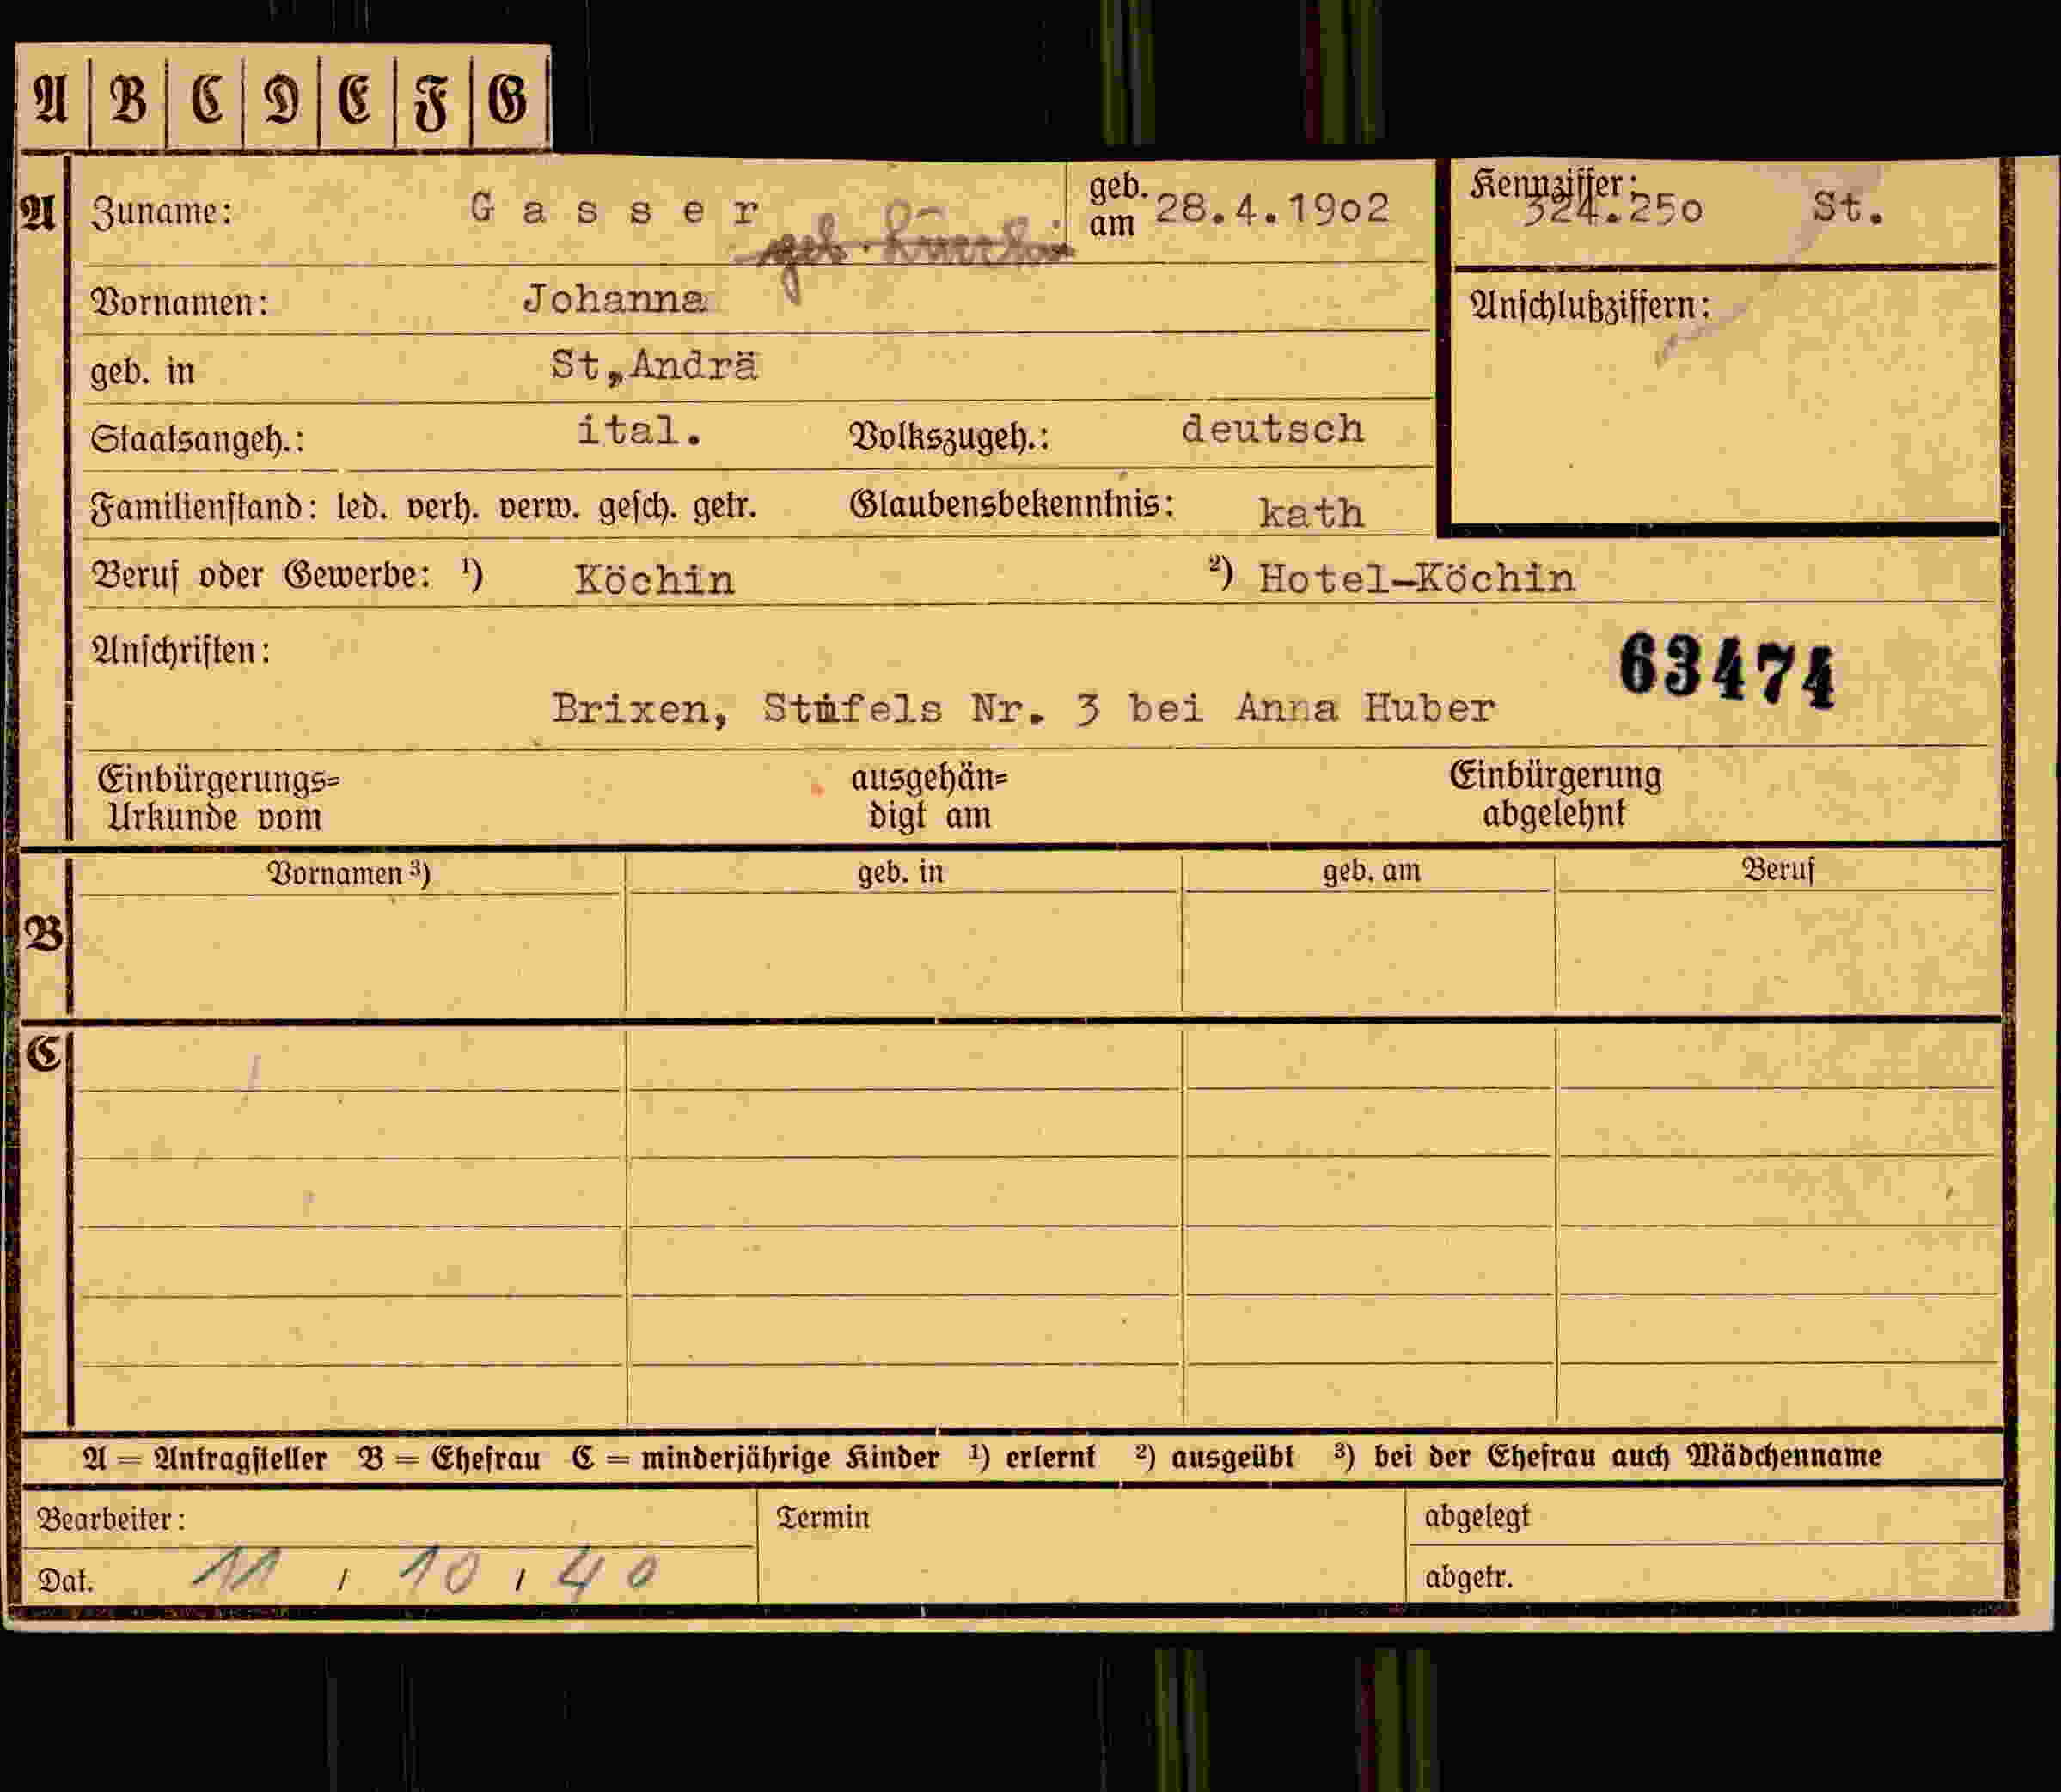 A B C D E F G
A Zuname: Gasser geb. am 28.4.1902 Kennziffer: 324.250 St.
geb.
Vornamen: Johanna Anschlußziffern:
geb. in St,,Andrä
Staatsangeh.: ital. Volkszugeh.: deutsch
Familienstand: led. verh. verw. gesch. getr. Glaubensbekenntnis: kath
Beruf oder Gewerbe: ¹) Köchin ²) Hotel-Köchin
Anschriften: 63474
Brixen, Stufels Nr. 3 bei Anna Huber
Einbürgerungs= ausgehän= Einbürgerung
Urkunde vom digt am abgelehnt
Vornamen ³) geb. in geb. am Beruf
B
C
A = Antragsteller B = Ehefrau C = minderjährige Kinder ¹) erlernt ²) ausgeübt ³) bei der Ehefrau auch Mädchenname
Bearbeiter: Termin abgelegt
Dat. 11 / 10 / 40 abgetr.